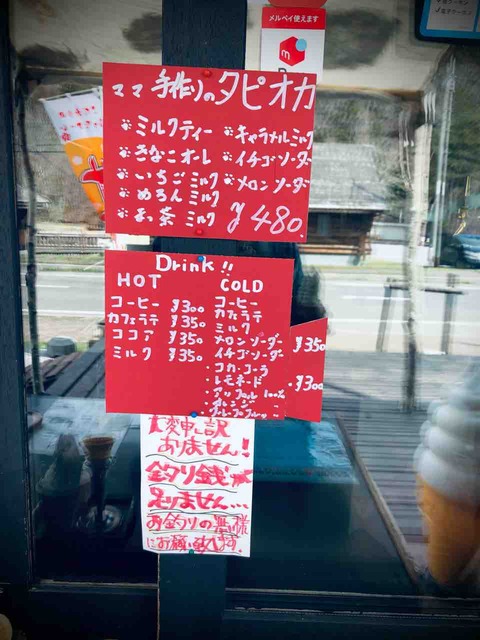 メルペイ使えます
ママ手作りのタピオカ
ミルクティー キャラメルミルク
きなこオーレ イチゴソーダー
いちごミルク メロンソーダー
めろんミルク
お茶ミルク ¥480
Drink!!
HOT COLD
コーヒー ¥300 コーヒー
カフェラテ ¥350 カフェラテ
ココア ¥350 ミルク
ミルク ¥350 メロンソーダー ¥350
イチゴソーダー
・コカ・コーラ
・レモネード ・¥300
・アップル 100%
・オレンジ
・グレープフルーツ
大変申し訳
ありません!
金釣り銭が
足りません...
お釣りの無い様
にお願い致します。